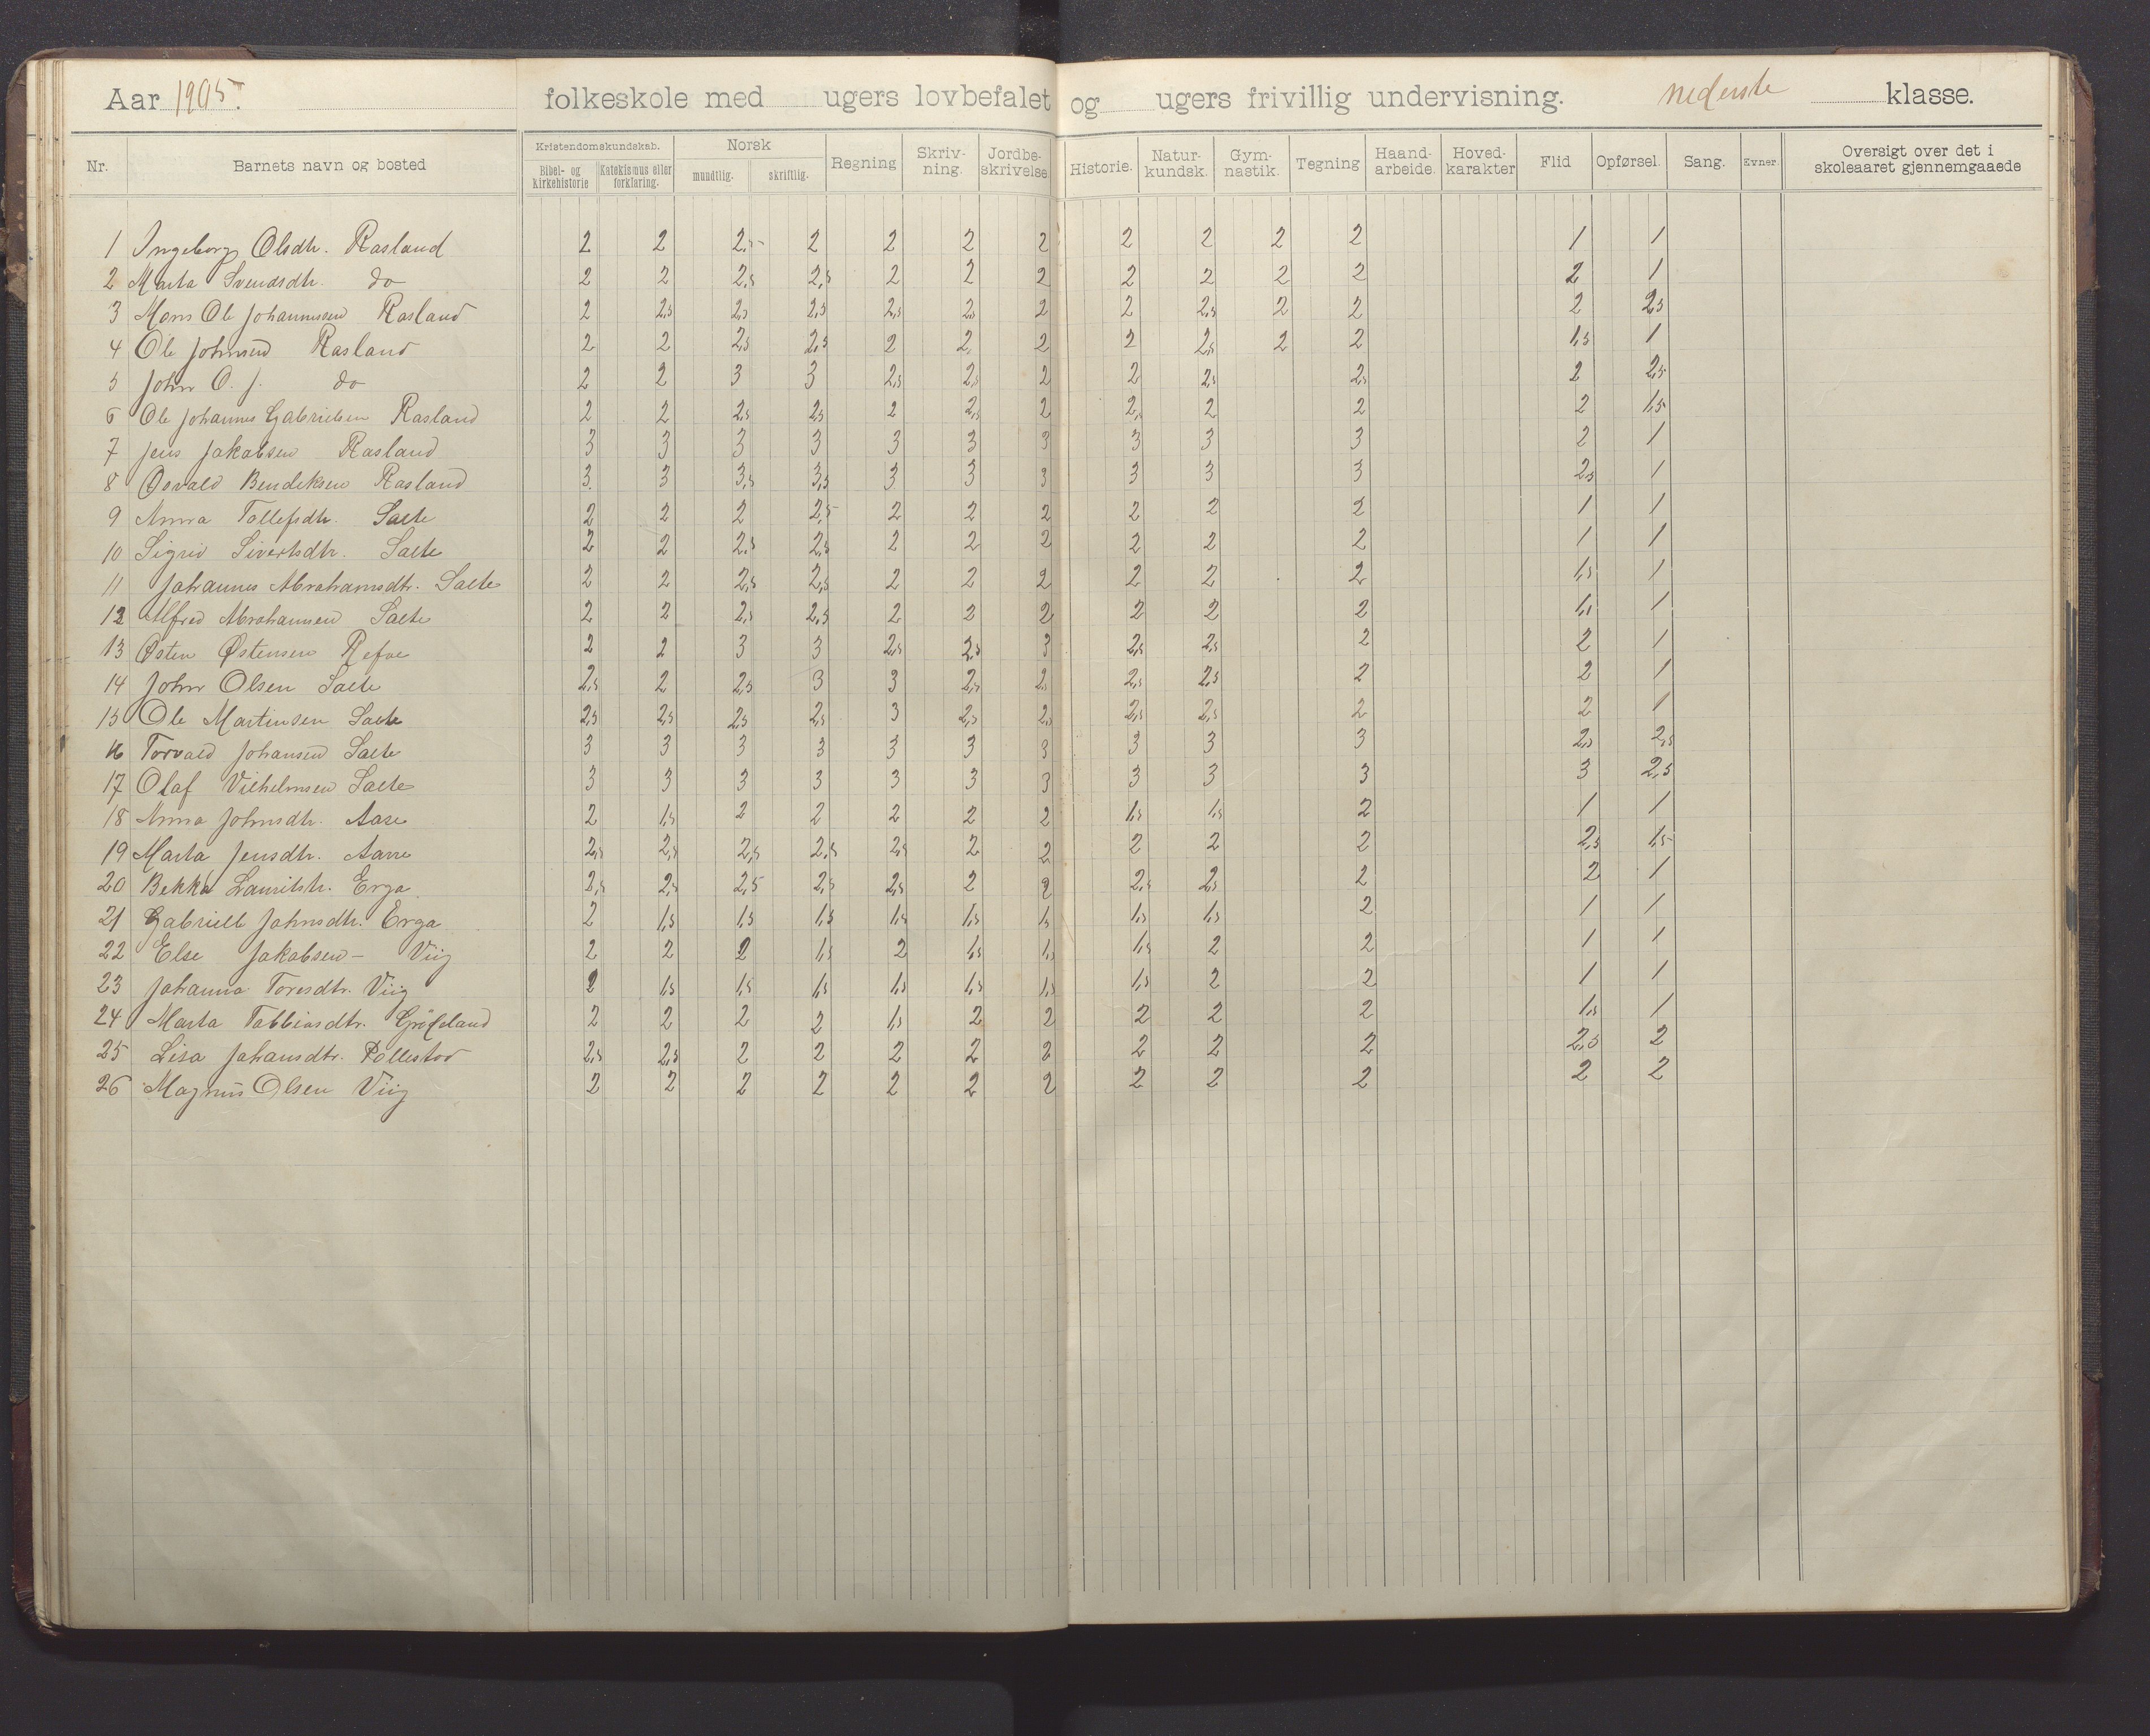 Aar 1905. folkeskole med ugers lovbefalet og ugers frivillig undervisning. nederste klasse.
Nr. Barnets navn og bosted Kristendomskundskab. Bibel- og kirkehistorie Katekismus eller forklaring. Norsk mundtlig. skriftlig. Regning Skriv-ning. Jordbe-skrivelse Historie. Natur-kundsk. Gym-nastik. Tegning Haand-arbeide. Hoved-karakter Flid Opførsel. Sang. Evner. Oversigt over det i skoleaaret gjennemgaaede
1 Ingeborg Olsdtr. Rasland 2 2 2,5 2 2 2 2 2 2 2 2 1 1
2 Marta Svendsdtr. do 2 2 2,5 2,5 2 2 2 2 2 2 2 2 1
3 Mons Ole Johannessen Rasland 2 2,5 2,5 2,5 2,5 2, 2 2 2,5 2 2 2 2,5
4 Ole Johnsen Rasland 2 2 2,5 2,5 2 2, 2 2 2,5 2 2 1,5 1
5 John O. J. do 2 2 3 3 2,5 2,5 2 2 2,5 2,5 2 2,5
6 Ole Johannes Gabrielsen Rasland 2 2 2,5 2,5 2 2,5 2 2,5 2 2 2 1,5
7 Jens Jakobsen Rasland 3 3 3 3 3 3 3 3 3 3 2 1
8 Osvald Bendiksen Rasland 3 3 3,5 3,5 3 3 3 3 3 3 2,5 1
9 Anna Tollefsdtr. Salte 2 2 2 2,5 2 2 2 2 2 2 1 1
10 Sigrid Sivertsdtr. Salte 2 2 2,5 2,5 2 2 2 2 2 2 1 1
11 Johannes Abrahamsdtr. Salte 2 2 2,5 2,5 2 2 2 2 2 2 1,5 1
12 Alfred Abrahamsen Salte 2 2 2,5 2,5 2 2 2 2 2 2 1,5 1
13 Østen Østensen Refve 2 2 3 3 2,5 2,5 3 2,5 2,5 2 2 1
14 John Olsen Salte 2,5 2 2,5 3 3 2,5 2, 2,5 2,5 2 2 1
15 Ole Martinsen Salte 2,5 2,5 2,5 2,5 3 2,5 2,5 2,5 2,5 2 2 1
16 Torvald Johansen Salte 3 3 3 3 3 3 3 3 3 3 2,5 2,5
17 Olaf Vilhelmsen Salte 3 3 3 3 3 3 3 3 3 3 3 2,5
18 Anna Johnsdtr. Aase 2 1,5 2 2 2 2 2 1,5 1,5 2 1 1
19 Marta Jensdtr. Aarre 2,5 2,5 2,5 2,5 2,5 2 2 2 2 2 2,5 1,5
20 Bekka Lauritstr. Erga 2,5 2,5 2,5 2,5 2,5 2 2 2,5 2,5 2 2 1
21 Gabrielle Johnsdtr. Erga 2 1,5 1,5 1,5 1,5 1,5 1,5 1,5 1,5 2 1 1
22 Else Jakobsen - Viig 2 2 2 1,5 2 1,5 1,5 1,5 2 2 1 1
23 Johanna Toresdtr. Viig 2 1,5 1,5 1,5 1,5 1,5 1,5 1,5 2 2 1 1
24 Marta Tobbiasdtr. 2 2 2 2 1,5 2 2 2 2 2 1,5 1
25 Lisa Johansdtr. Pollestad 2,5 2,5 2 2 2 2 2 2 2 2 2,5 2
26 Magnus Olsen Viig 2 2 2 2 2 2 2 2 2 2 2 2